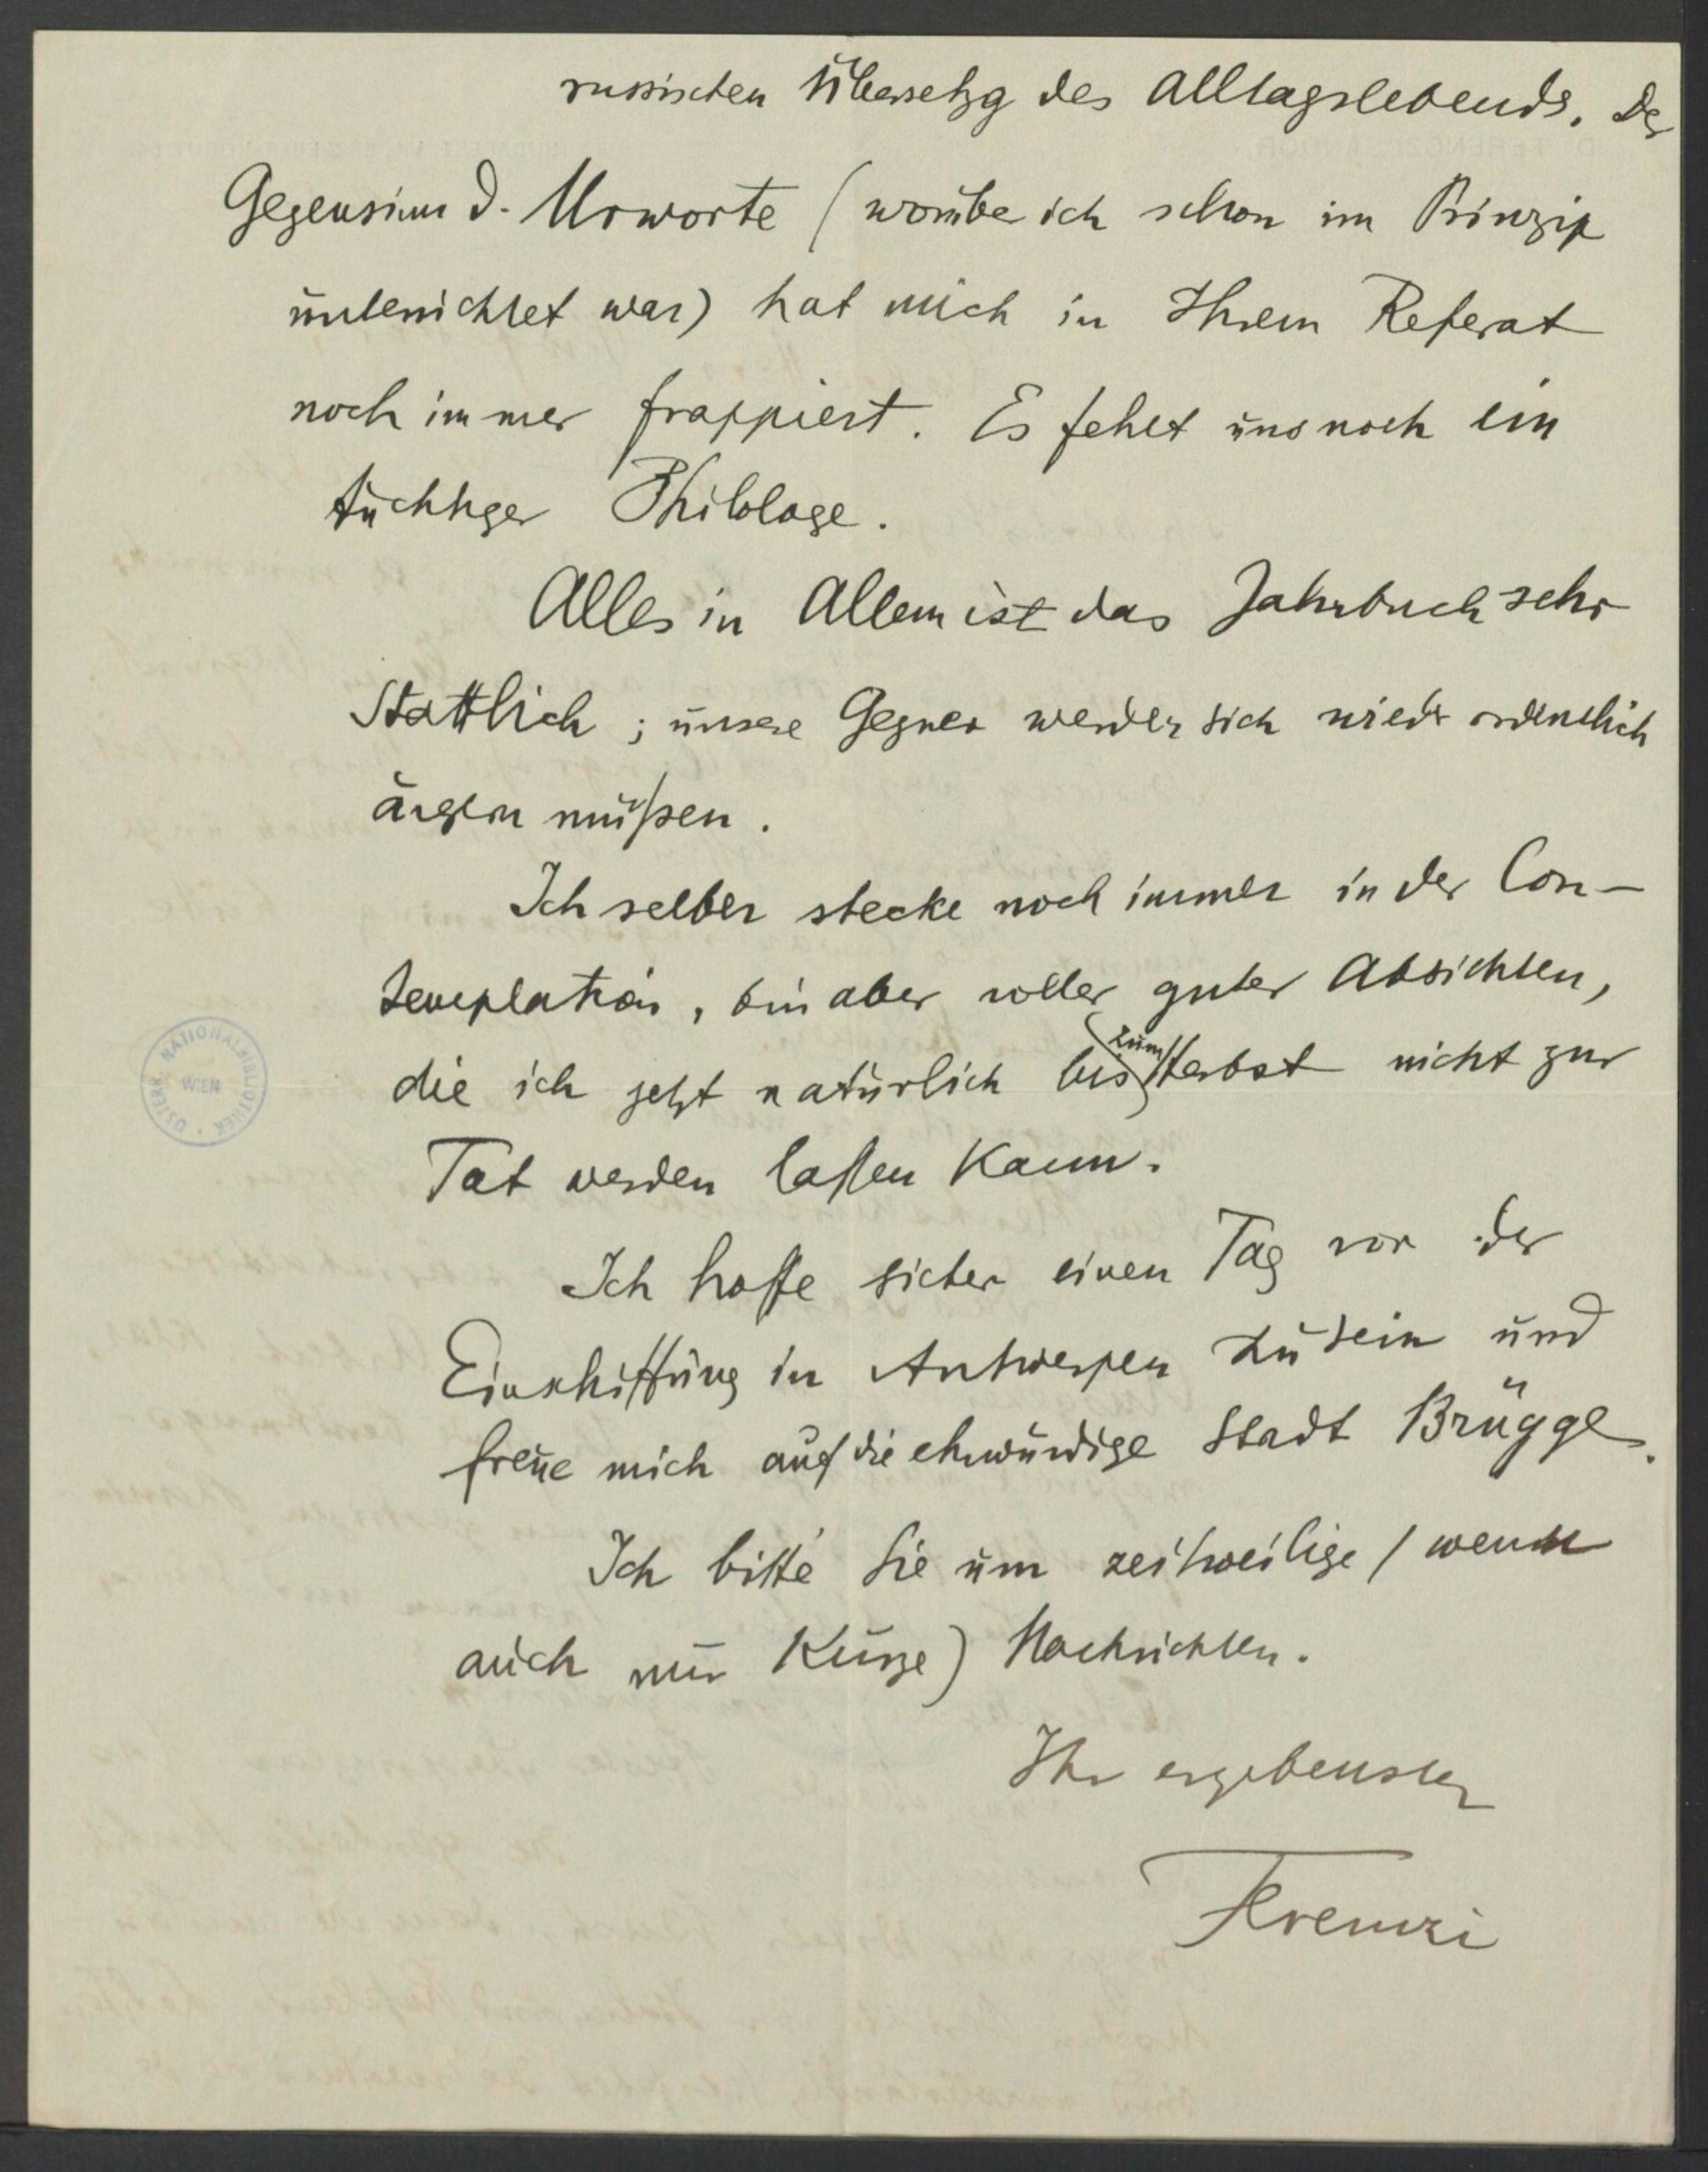 russischen Übersetzg des Alltagslebends. Der
Gegensinn d. Urworte (worüber ich schon im Prinzip
unterrichtet war) hat mich in Ihrem Referat
noch immer frappiert. Es fehlt uns noch ein
tüchtiger Philologe.
Alles in Allem ist das Jahrbuch sehr
stattlich; unsere Gegner werden sich wieder ordentlich
ärgern müßen.
Ich selber stecke noch immer in der Con-
templation, bin aber voller guter Absichten,
die ich jetzt natürlich bis zum Herbst nicht zur
Tat werden laßen kann.
Ich hoffe sicher einen Tag vor der
Einschiffung in Antwerpen zu sein und
freue mich auf die ehrwürdige Stadt Brügge.
Ich bitte Sie um zeitweilige (wenn
auch nur kurze) Nachrichten.
Ihr ergebenster
Ferenczi
ÖSTERR. NATIONALBIBLIOTHEK
WIEN